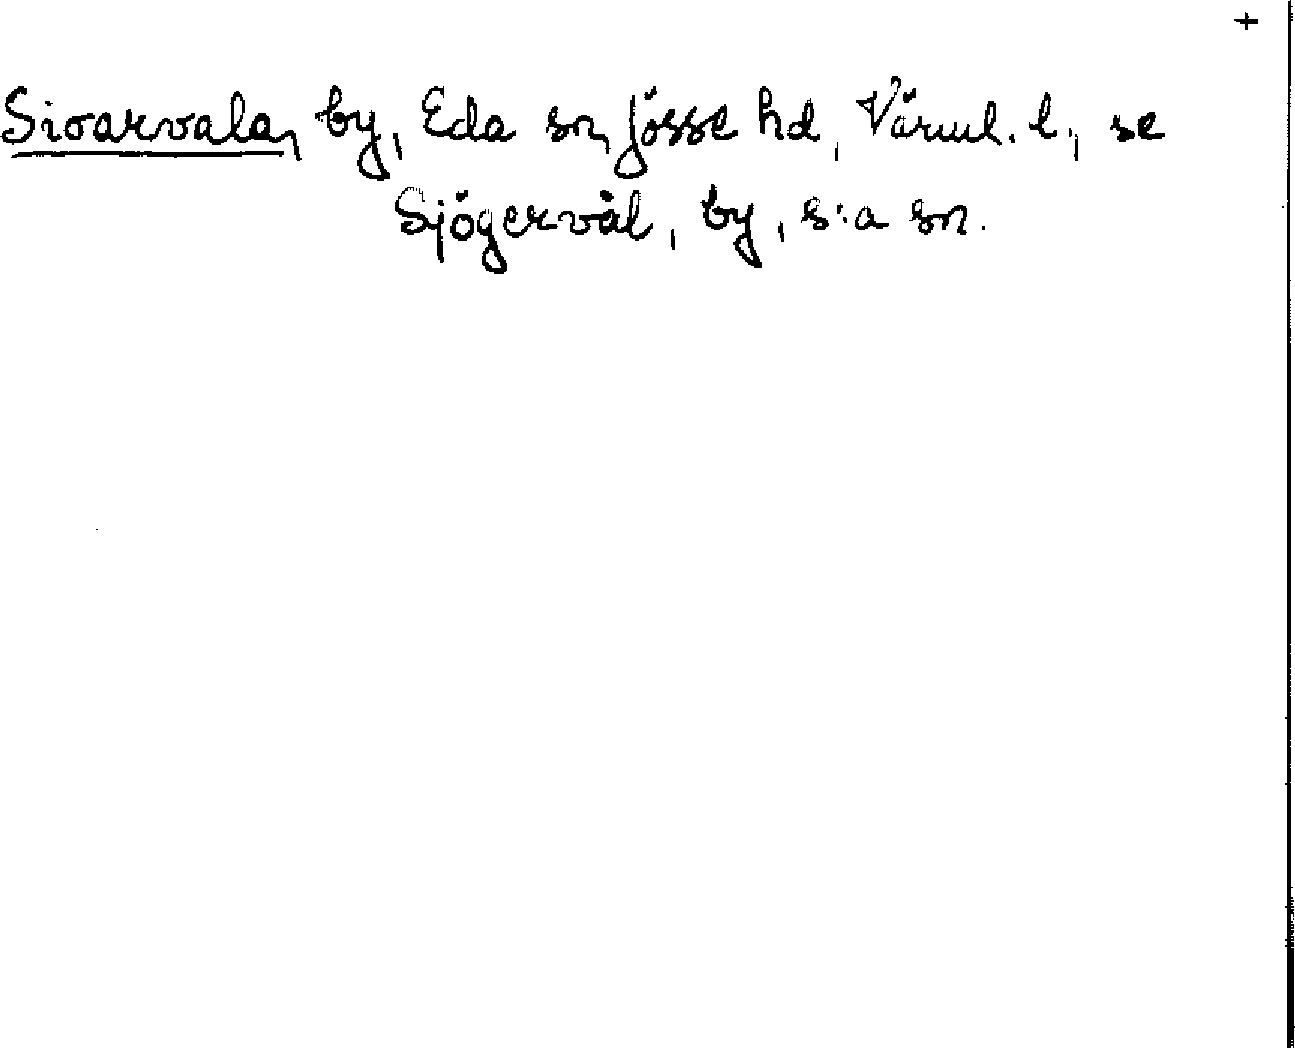 +
Sioarvala, by, Eda sn, Jösse hd, Värml. l., se
Sjögervål, by, s:a sn.